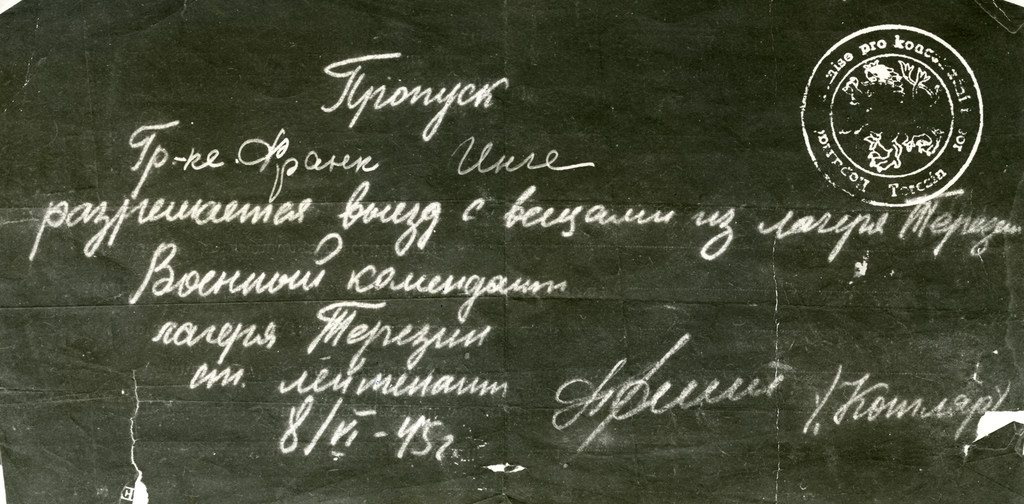 Пропуск
Гр-ке Франк Инге
разрешается выезд с вещами из лагеря Терезин
Военный комендант
лагеря Терезин
ст. лейтенант
8/VI-45г.
(Котляр)
pro
Terezín